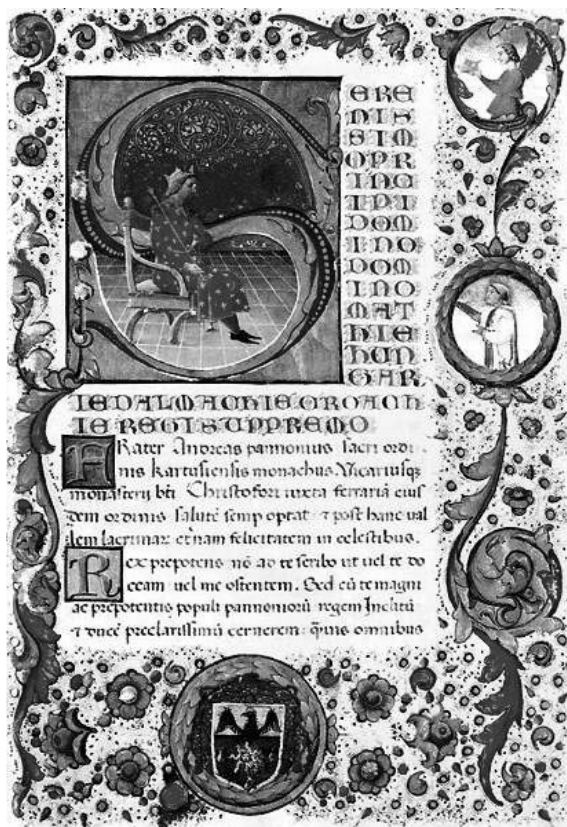 S
ERE
NIS
SIM
OPR
INC
IPI
DOM
INO
DOM
INO
MAT
HIE
HUN
GAR
IE DALMACHIE CROACH
IE REGI SUPPREMO
FRater Andreas pannonius sacri ordi
nis kartusiensis monachus Vicariusq
monasterii bti Christofori iuxta ferrariā eius
dem ordinis salutē semp optat ⁊ post hanc val
lem lacrimar eternam felicitatem in celestibus.
Rex prepotens nō ao te scribo ut vel te do
ceam vel me ostentem. Sed cū te magni
ac prepotentis populi pannoniorū regem Inclitū
⁊ ducē preclarissimū cernerem: q̄uis omnibus